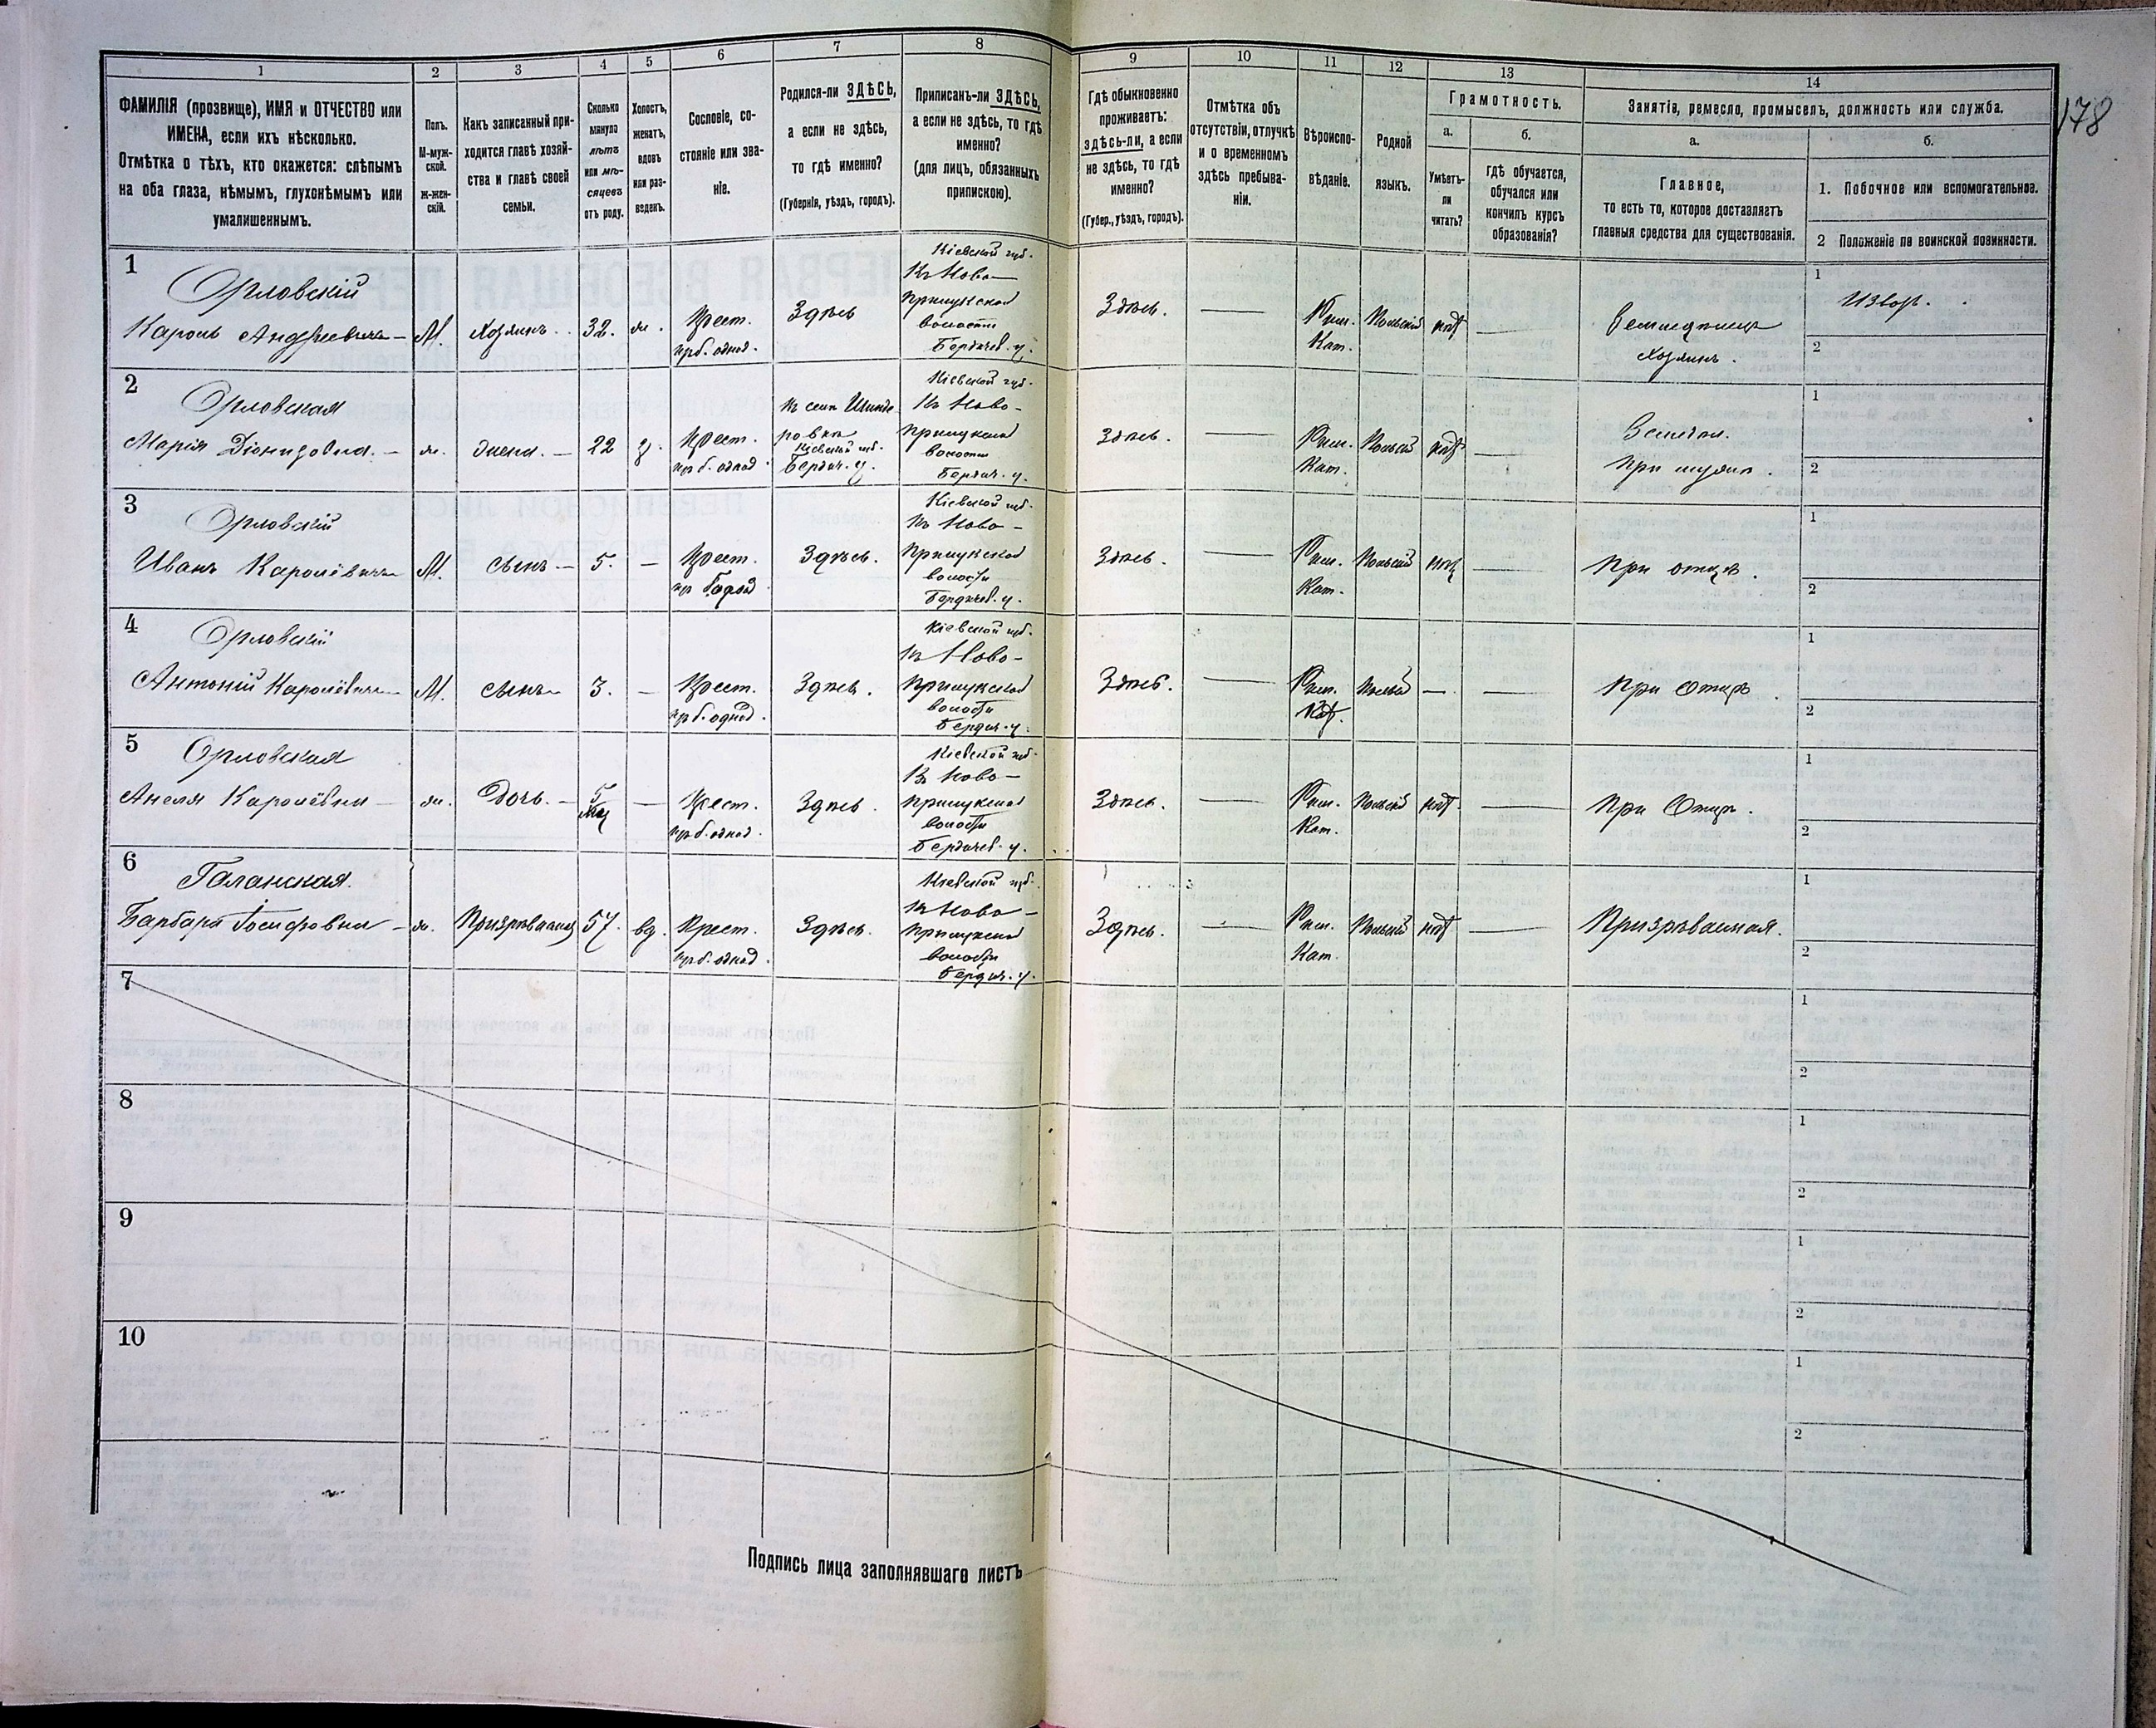 178
1
2
3
4
5
6
7
8
9
10
11
12
13
14
ФАМИЛІЯ (прозвище), ИМЯ и ОТЧЕСТВО или
ИМЕНА, если ихъ нѣсколько.
Отмѣтка о тѣхъ, кто окажется: слѣпымъ
на оба глаза, нѣмымъ, глухонѣмымъ или
умалишеннымъ.
Полъ.
М-муж-
ской.
ж-жен-
скій.
Какъ записанный при-
ходится главѣ хозяй-
ства и главѣ своей
семьи.
Сколько
минуло
лѣтъ
или мѣ-
сяцевъ
отъ роду.
Холостъ,
женатъ,
вдовъ
или раз-
веденъ.
Сословіе, со-
стояніе или зва-
ніе.
Родился-ли ЗДѢСЬ,
а если не здѣсь,
то гдѣ именно?
(Губернія, уѣздъ, городъ).
Приписанъ-ли ЗДѢСЬ,
а если не здѣсь, то гдѣ
именно?
(для лицъ, обязанныхъ
припискою).
Гдѣ обыкновенно
проживаетъ:
здѣсь-ли, а если
не здѣсь, то гдѣ
именно?
(Губер., уѣздъ, городъ).
Отмѣтка объ
отсутствіи, отлучкѣ
и о временномъ
здѣсь пребыва-
ніи.
Вѣроиспо-
вѣданіе.
Родной
языкъ.
Грамотность.
а.
Умѣетъ-
ли
читать?
б.
гдѣ обучается,
обучался или
кончилъ курсъ
образованія?
Занятіе, ремесло, промыселъ, должность или служба.
а.
Главное,
то есть то, которое доставляетъ
главныя средства для существованія.
б.
1. Побочное или вспомогательное.
2 Положеніе по воинской повинности.
1
Орловскій
Кароль Андреевичъ
М.
Хозяинъ
32.
ж.
Крест.
из б. однод.
Здѣсь
Кіевской губ.
Къ Ново-
Прилукской
волости
Бердичев. у.
Здѣсь.
Рим.
Кат.
Польскій
нѣт
земледѣлец
Хозяинъ.
1
Извоз.
2
2
Орловская
Марія Діонизовна.
ж.
жена.
22
з.
Крест.
из б. однод.
Въ селѣ
ровкѣ
Кіевской губ.
Бердич. у.
Кіевской губ.
Къ Ново-
Прилукской
волости
Бердич. у.
Здѣсь.
Рим.
Кат.
Польскій
нѣт
Землед.
При мужѣ.
1
2
3
Орловскій
Иванъ Каролёвичъ
М.
сынъ
5.
Крест.
из б. однод
Здѣсь.
Кіевской губ.
Къ Ново-
Прилукской
волости
Бердичев. у.
Здѣсь.
Рим.
Кат.
Польскій
нѣт
При отцѣ.
1
2
4
Орловскій
Антоній Каролёвичъ
М.
сынъ
3.
Крест.
из б. однод.
Здѣсь.
Кіевской губ.
Къ Ново-
Прилукской
волости
Бердич. у.
Здѣсь.
Рим.
Кат.
Польскій
При Отцѣ
1
2
5
Орловская
Анеля Каролёвна
ж.
Дочь.
5
Мец
Крест.
из б. однод.
Здѣсь.
Кіевской губ.
Къ Ново-
Прилукской
волости
Бердичев. у.
Здѣсь.
Рим.
Кат.
Польскій
нѣт.
При Отцѣ.
1
2
6
Галанская.
Барбара Іосифовна
ж.
Призрѣваемая
57.
вд.
Крест.
из б. однод.
Здѣсь.
Кіевской губ.
Къ Ново-
Прилукской
волости
Бердич. у.
Здѣсь.
Рим.
Кат.
Польскій
нѣт
Призрѣваемая.
1
2
7
1
2
8
1
2
9
1
2
10
1
2
Подпись лица заполнявшаго листъ